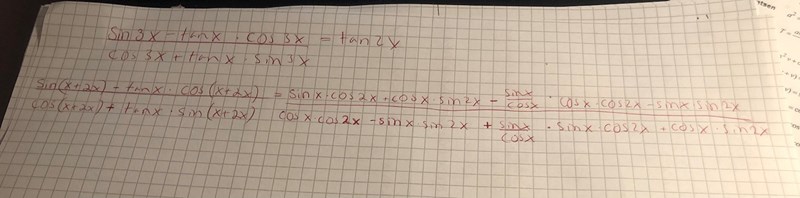 sin 3x - tan x · cos 3x / cos 3x + tan x · sin 3x = tan 2x
sin(x+2x) - tanx · cos(x+2x) / cos(x+2x) + tanx · sin(x+2x) = sinx · cos2x + cosx · sin2x - sinx/cosx · cosx · cos2x - sinx sin2x / cosx cos2x - sinx sin 2x + sinx/cosx · sinx · cos2x + cosx · sin2x